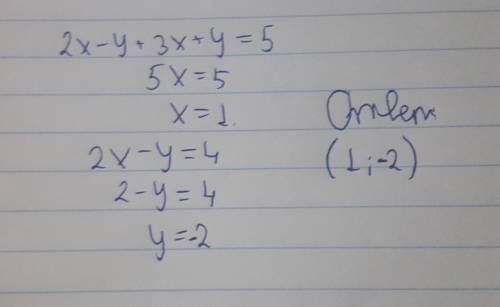 2x-y+3x+y=5
5x=5
x=1.
2x-y=4
2-y=4
y=-2
Ответ
(1;-2)